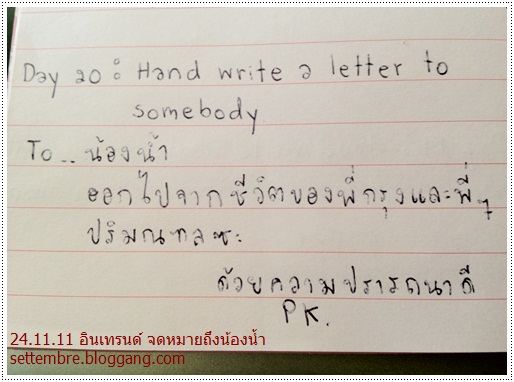 Day 20 : Hand write a letter to
somebody
To .. น้องน้ำ
ออกไปจากชีวิตของพี่กรุงและพี่ๆ
ปริมณฑลซะ
ด้วยความปรารถนาดี
PK.
24.11.11 อินเทรนด์ จดหมายถึงน้องน้ำ
settembre.bloggang.com